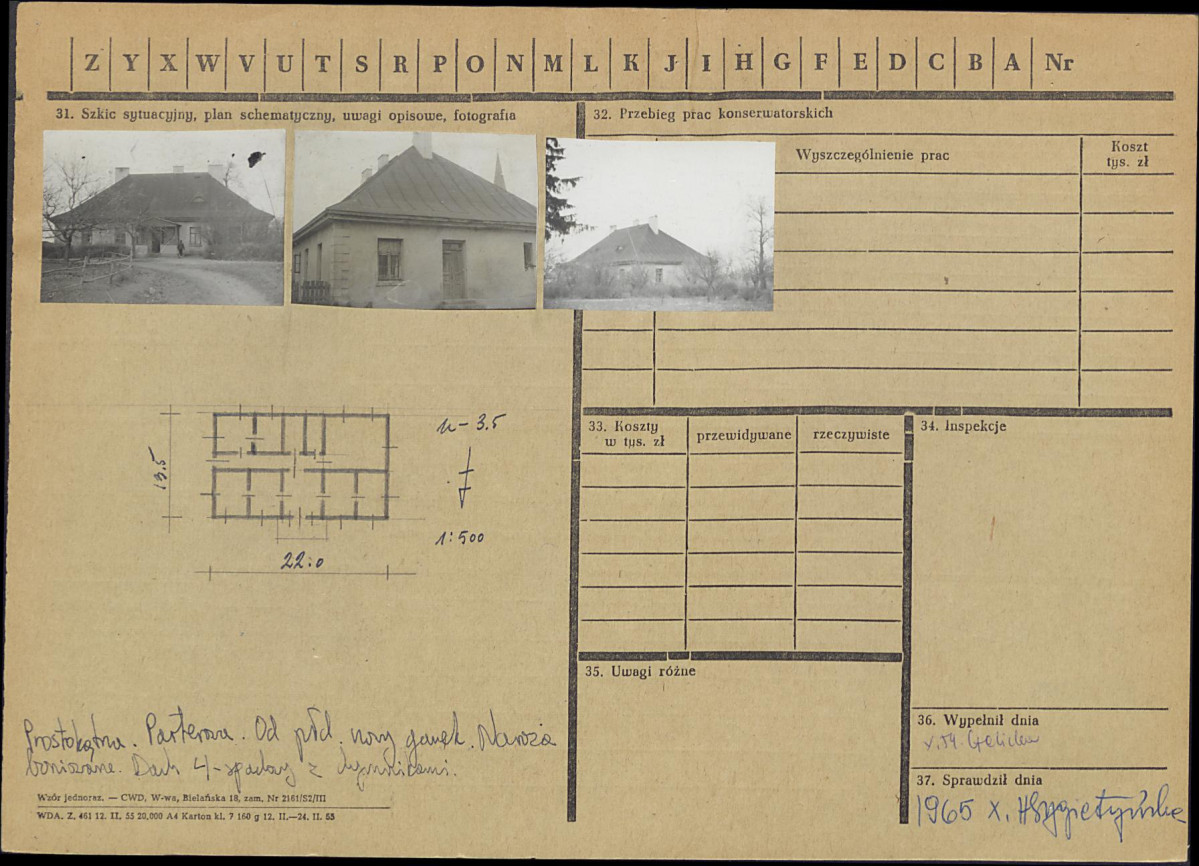 Z Y X W V U T S R P O N M L K J I H G F E D C B A Nr
31. Szkic sytuacyjny, plan schematyczny, uwagi opisowe, fotografia
32. Przebieg prac konserwatorskich
Wyszczególnienie prac
Koszt
tys. zł
h-3.5
13.5
1:500
22.0
33. Koszty
w tys. zł
przewidywane
rzeczywiste
34. Inspekcje
35. Uwagi różne
Prostokątna. Parterowa. Od płd. nowy ganek. Naroża
boniowane. Dach 4-spadowy z dymnikami.
36. Wypełnił dnia
37. Sprawdził dnia
1965 X.
Wzór jednoraz. — CWD, W-wa, Bielańska 18, zam. Nr 2161/S2/III
WDA. Z. 461 12. II. 55 20.000 A4 Karton kl. 7 160 g 12. II.—24. II. 55